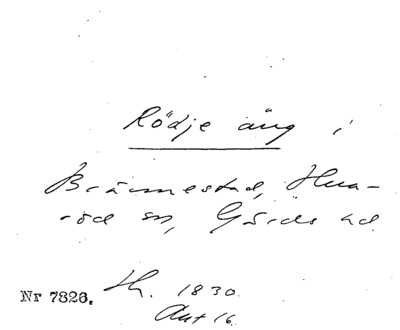 Rödje äng i
Brännestad, Hua-
röd sn, Gärds hd
Nr 7826. Th. 1830
Akt 16